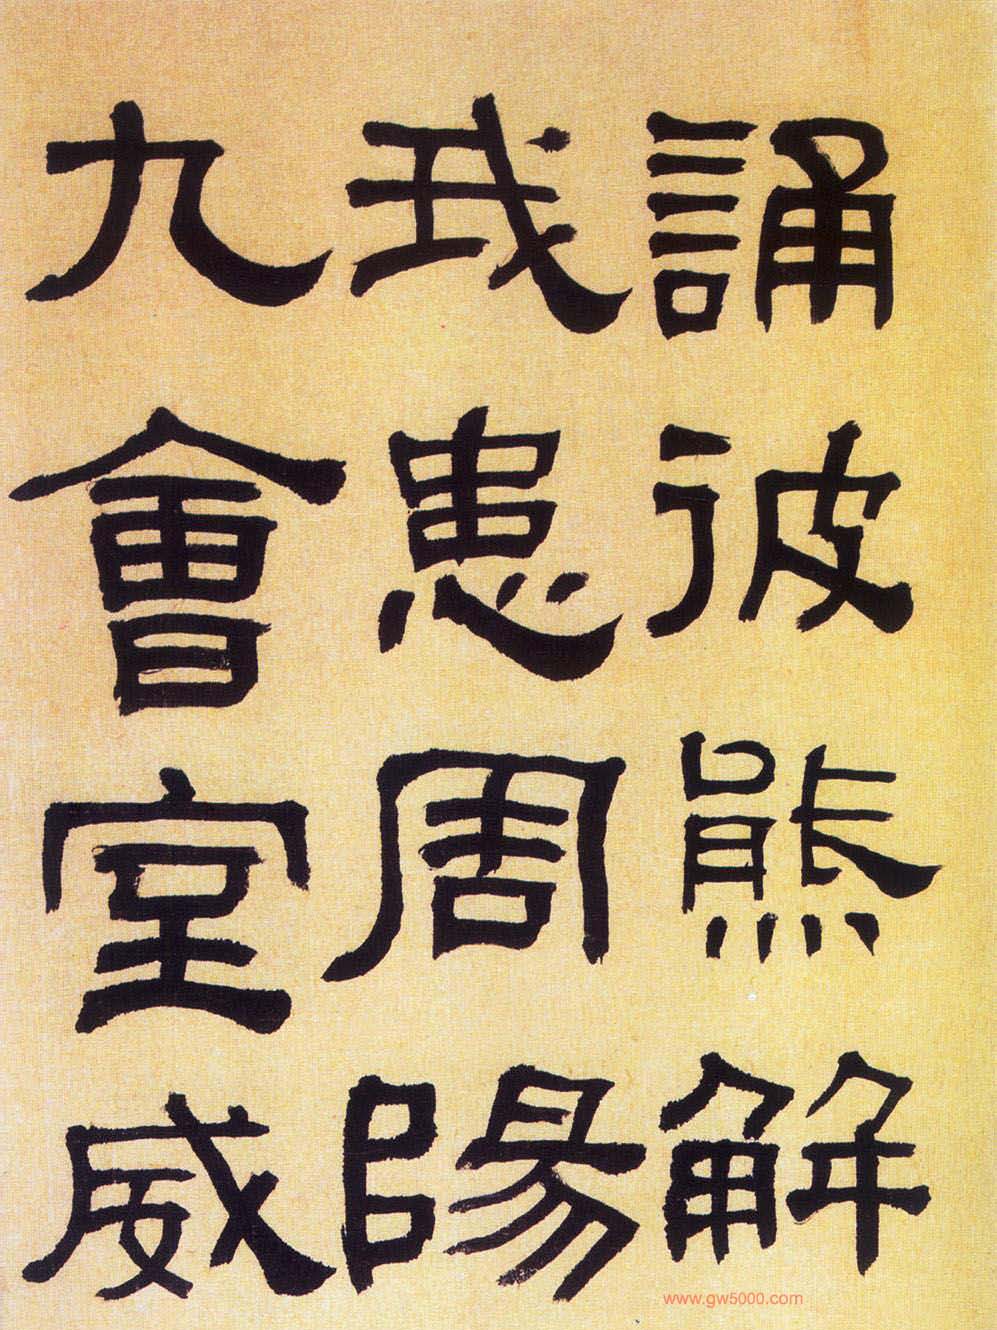 誦彼熊解
我患周陽
九會室威
www.gw5000.com